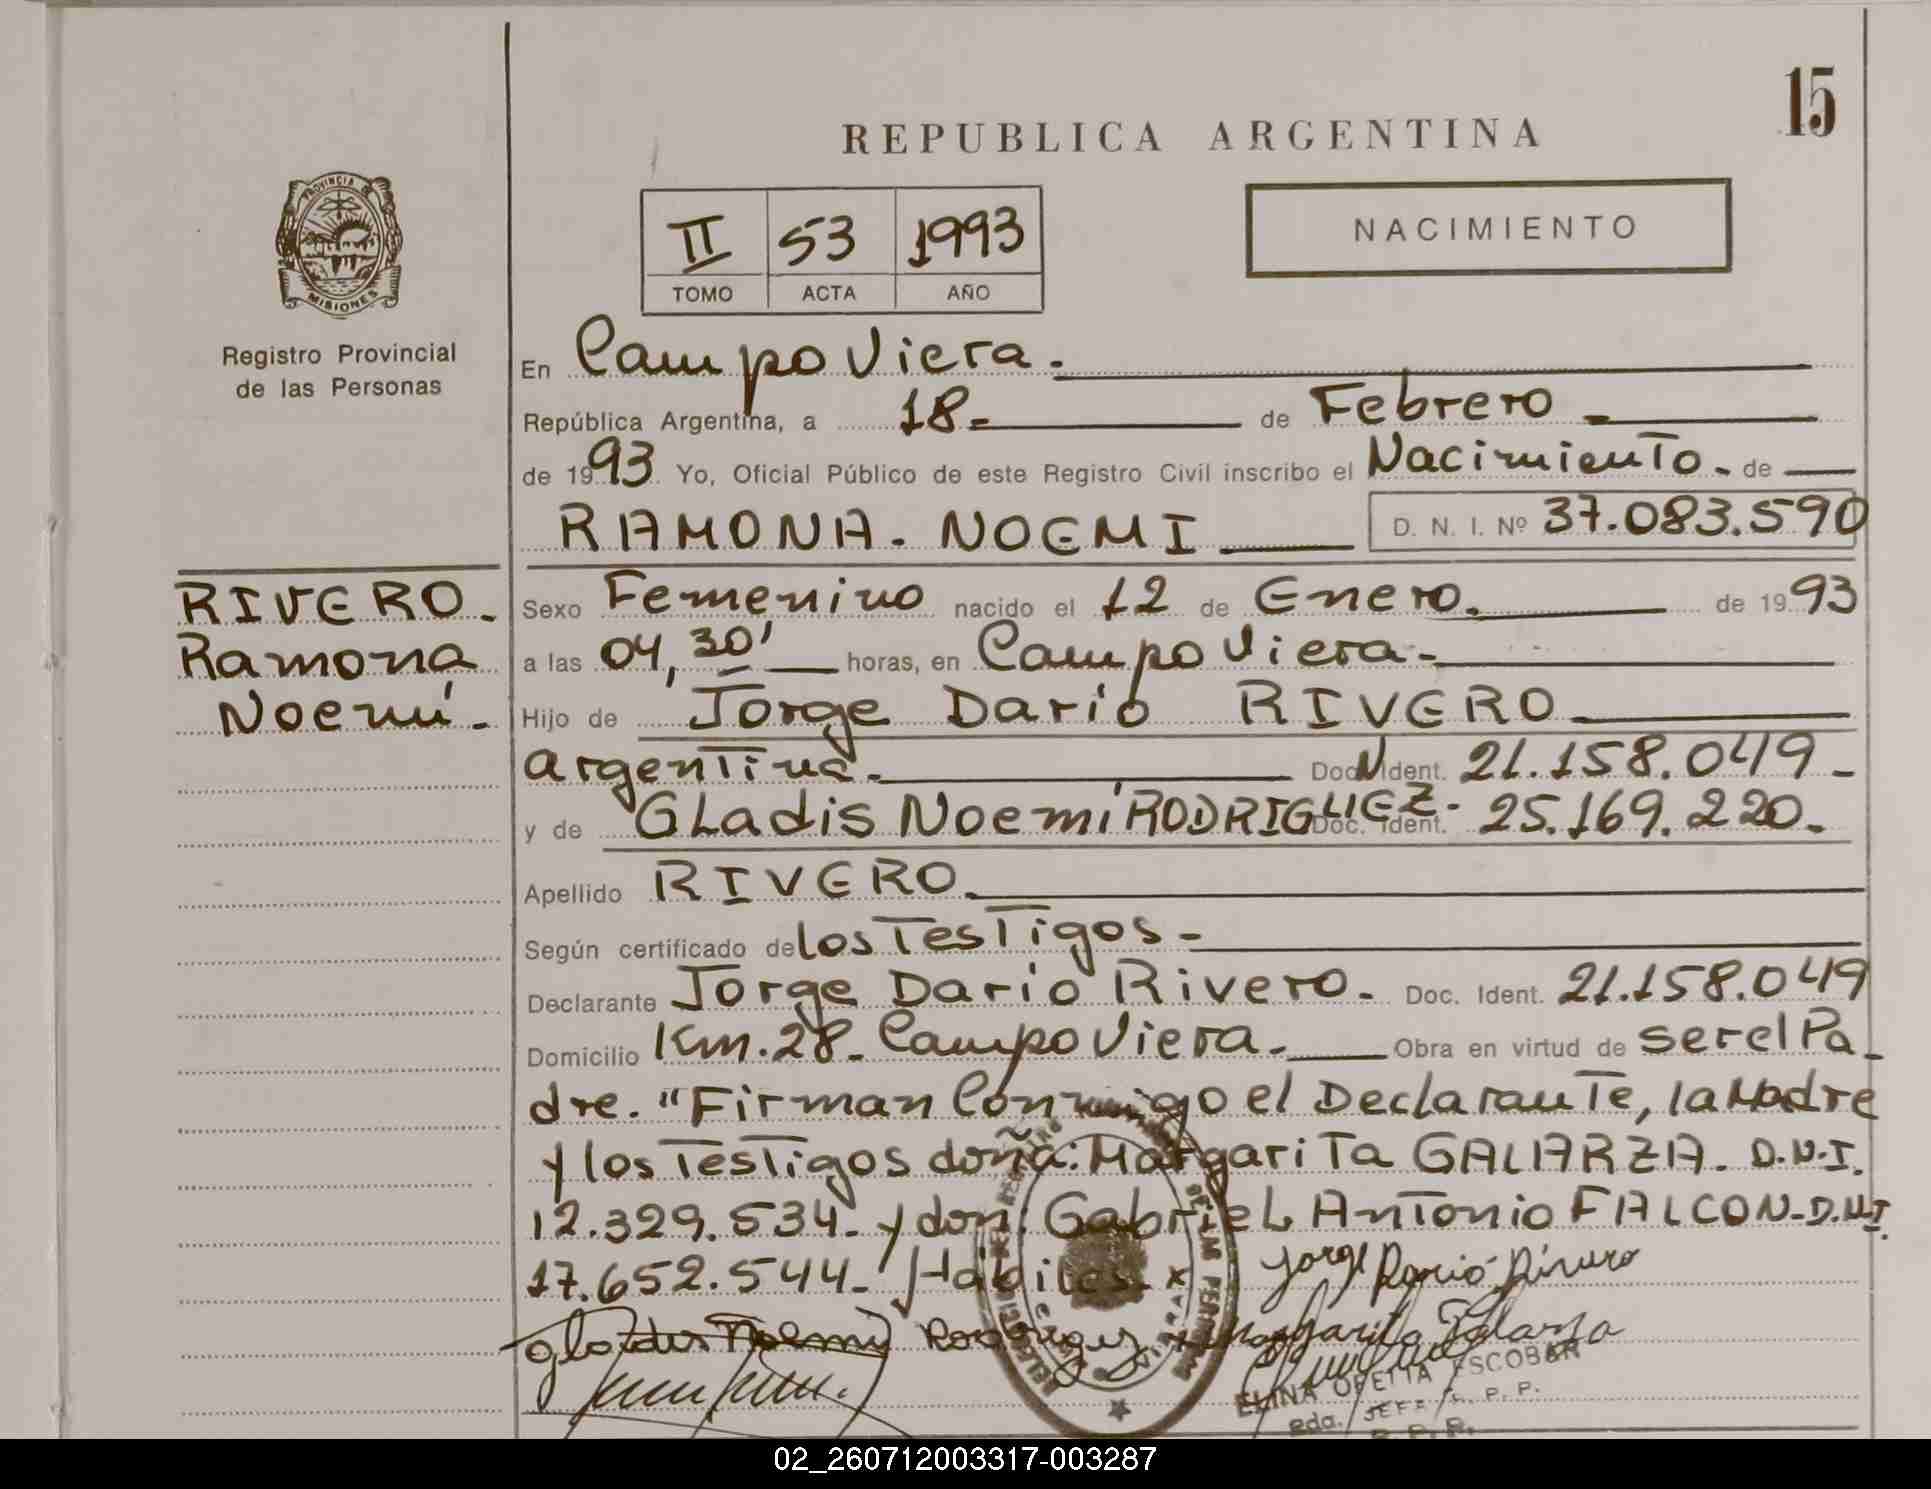 15
REPUBLICA ARGENTINA
PROVINCIA DE
MISIONES
II 53 1993
TOMO ACTA AÑO
NACIMIENTO
Registro Provincial
de las Personas
En Campo Viera.
República Argentina, a 18- de Febrero -
de 1993 Yo, Oficial Público de este Registro Civil inscribo el Nacimiento - de
RAMONA - NOEMI D. N. I. Nº 37.083.590
RIVERO -
Ramona
Noemí -
Sexo Femenino nacido el 12 de Enero. de 1993
a las 04,30' horas, en Campo Viera -
Hijo de Jorge Darío RIVERO
Argentina. Doc. Ident. 21.158.049 -
y de GLadis Noemí RODRIGUEZ - Doc. Ident. 25.169.220.
Apellido RIVERO.
Según certificado de los Testigos -
Declarante Jorge Darío Rivero - Doc. Ident. 21.158.049
Domicilio Km. 28 - Campo Viera - Obra en virtud de ser el Pa-
dre. "Firman Conmigo el Declarante, la Madre
y los Testigos doña: Margarita GALARZA. D.N.I.
12.329.534 - y don: GabrieL Antonio FALCON - D.N.I.
17.652.544 - Hábiles x
Jorge Dario Rivero
Gladis Noemi Rodriguez x Margarita Galarza
ELINA OPETTA ESCOBAR
JEFE R. P. P.
R. P. P.
02_260712003317-003287